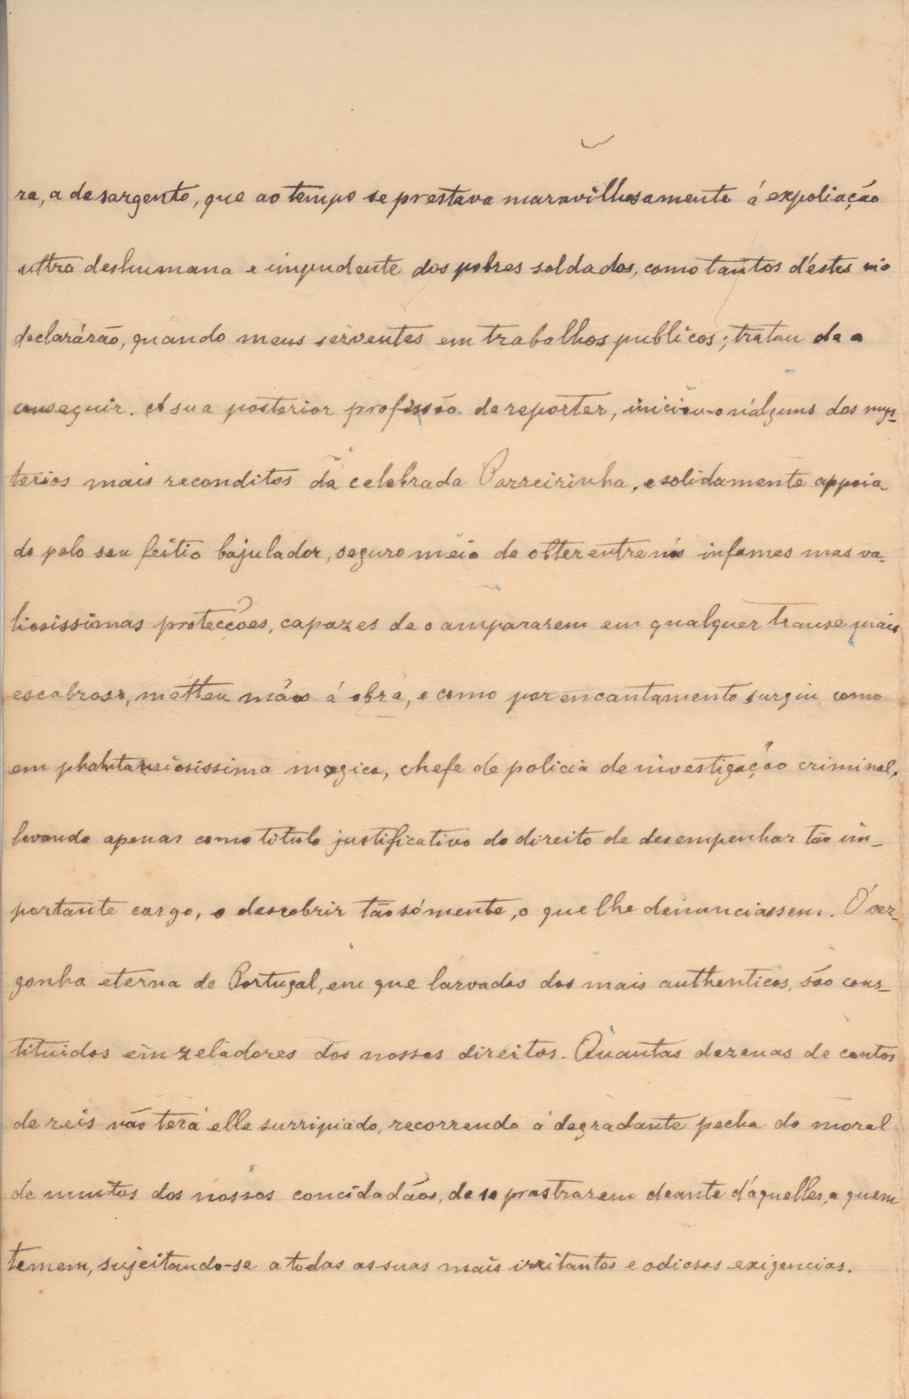 ra, a de sargento, que ao tempo se prestava maravilhosamente á expoliação
ultra deshumana e impudente dos pobres soldados, como tantos d'éstes m'o
declarárão, quando meus serventes em trabalhos publicos; tratou de a
conseguir. A sua posterior profissão de reporter, iniciou-o n'alguns dos mys-
terios mais reconditos da celebrada Parreirinha, e solidamente appoia-
do pelo seu feitio bajulador, seguro meio de obter entre nós infames mas va-
liosissimas protecções, capazes de o ampararem em qualquer transe mais
escabroso, metteu mãos á obra, e como por encantamento surgiu como
em phantasiosissima magica, chefe de policia de investigação criminal,
levando apenas como titulo justificativo do direito de desempenhar tão im-
portante cargo, o descobrir tão sómente, o que lhe denunciassem. Ó ver-
gonha eterna de Portugal, em que larvados dos mais authenticos, são cons-
tituidos em zeladores dos nossos direitos. Quantas dezenas de contos
de reis não terá elle surripiado, recorrendo á degradante pecha do moral
de muitos dos nossos concidadãos, de se prostrarem deante d'aquelles, a quem
temem, sujeitando-se a todas as suas mais irritantes e odiosas exigencias.